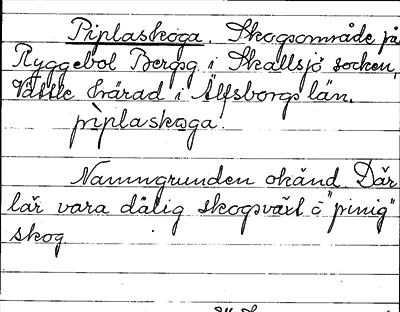 Piplaskoga. Skogsområde på
Ryggebol Bergsg i Skallsjö socken,
Vättle härad i Älfsborgs län.
pìplaskoga
Namngrunden okänd. Där
lär vara dålig skogsväxt o "pinig"
skog